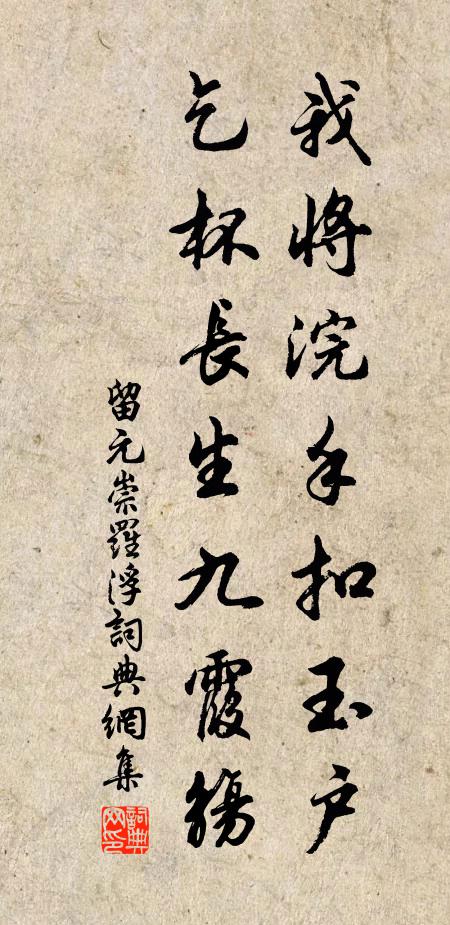 我將浣手扣玉户
乞杯長生九霞觴
留元崇羅浮詞典網集
詞典網印